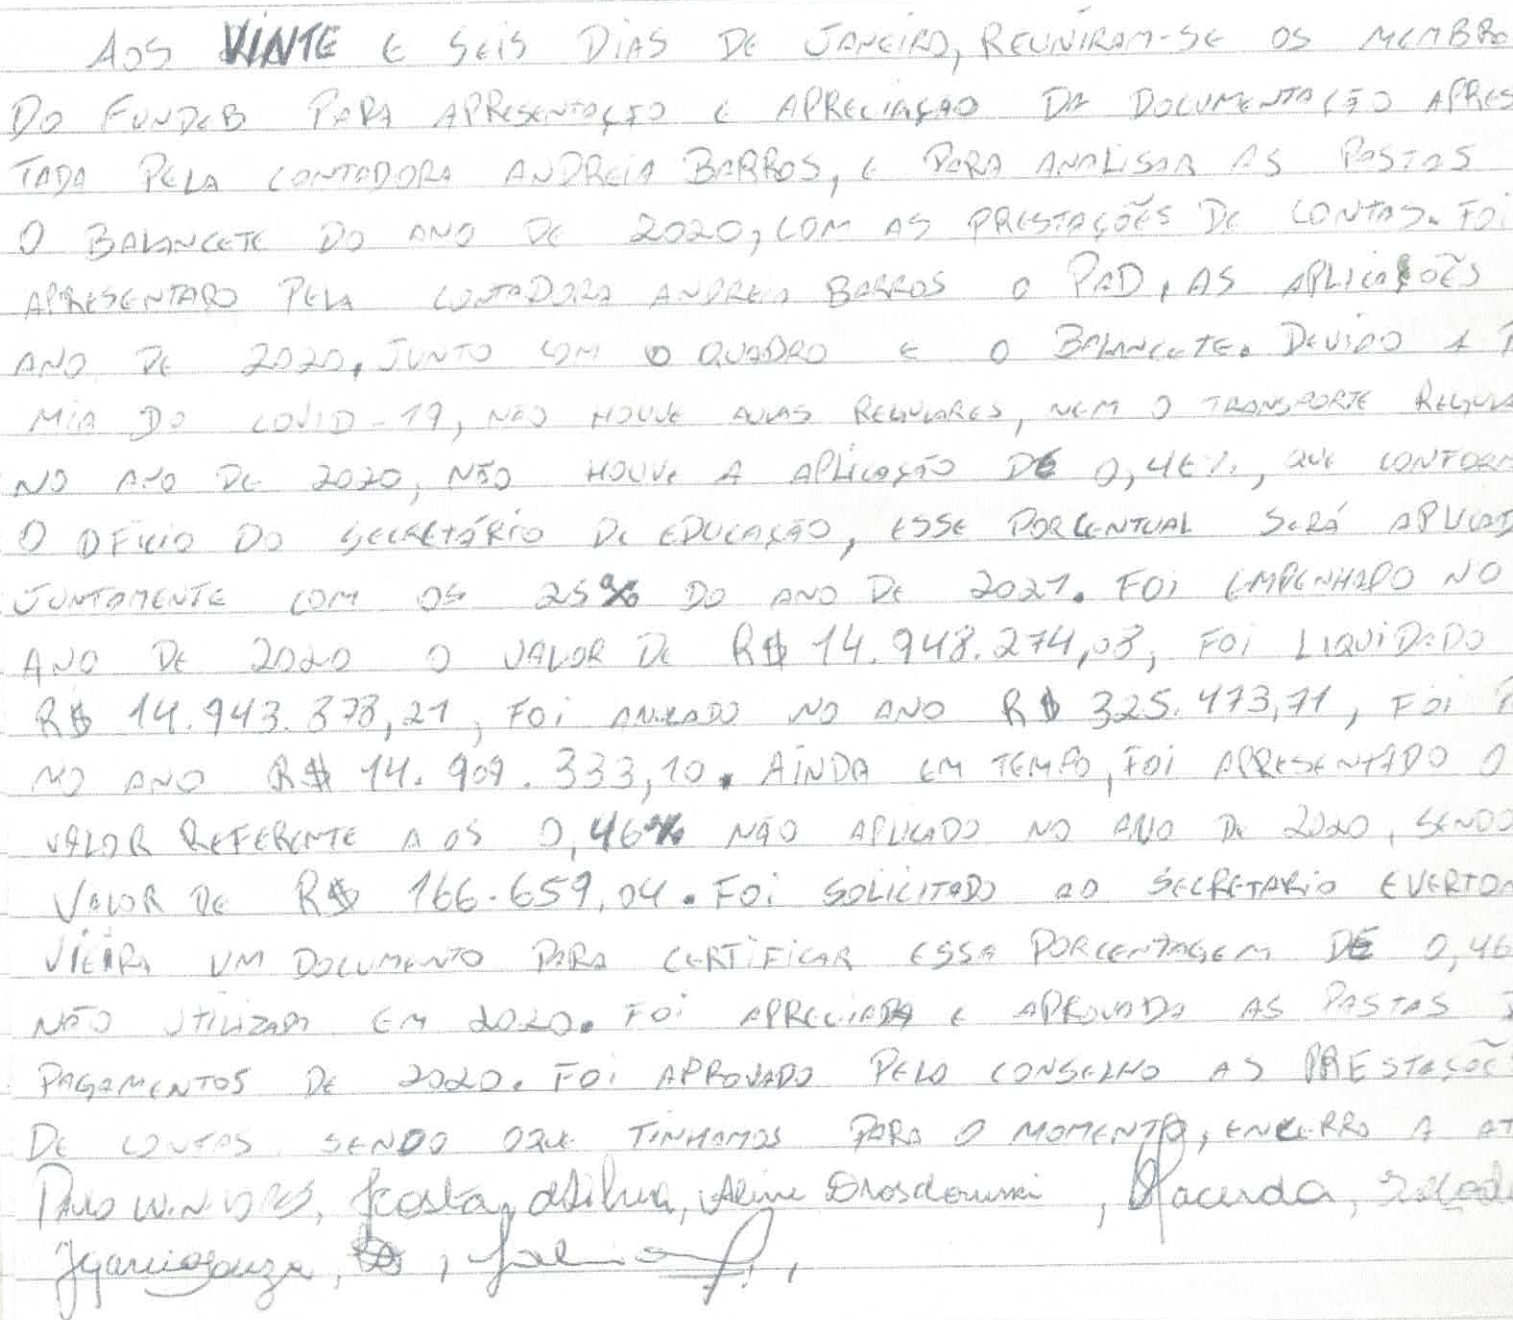 AOS VINTE E SEIS DIAS DE JANEIRO, REUNIRAM-SE OS MEMBRO
DO FUNDEB PARA APRESENTAÇÃO E APRECIAÇÃO DA DOCUMENTAÇÃO APRES
TADA PELA CONTADORA ANDREIA BARROS, E PARA ANALISAR AS PASTAS
O BALANCETE DO ANO DE 2020, COM AS PRESTAÇÕES DE CONTAS. FOI
APRESENTADO PELA CONTADORA ANDREIA BARROS O PAD, AS APLICAÇÕES
ANO DE 2020, JUNTO COM O QUADRO E O BALANCETE. DEVIDO A
MIA DO COVID-19, NÃO HOUVE AULAS REGULARES, NEM O TRANSPORTE REGULA
NO ANO DE 2020, NÃO HOUVE A APLICAÇÃO DE 0,46%, QUE CONFORM
O OFICIO DO SECRETÁRIO DE EDUCAÇÃO, ESSE PORCENTUAL SERÁ APLICAD
JUNTAMENTE COM OS 25% DO ANO DE 2021. FOI EMPENHADO NO
ANO DE 2020 O VALOR DE R$ 14.948.274,08, FOI LIQUIDADO
R$ 14.943.378,21, FOI ANULADO NO ANO R$ 325.473,71, FOI
NO ANO R$ 14.909.333,10. AINDA EM TEMPO, FOI APRESENTADO O
VALOR REFERENTE A OS 0,46% NÃO APLICADO NO ANO DE 2020, SENDO
VALOR DE R$ 166.659,04. FOI SOLICITADO AO SECRETARIO EVERTON
VIEIRA UM DOCUMENTO PARA CERTIFICAR ESSA PORCENTAGEM DE 0,46
NÃO UTILIZADA EM 2020. FOI APRECIADA E APROVADA AS PASTAS
PAGAMENTOS DE 2020. FOI APROVADO PELO CONSELHO AS PRESTAÇÕE
DE CONTAS SENDO OQUE TINHAMOS PARA O MOMENTO, ENCERRO A AT
Aline Drosdowski, Macerda,